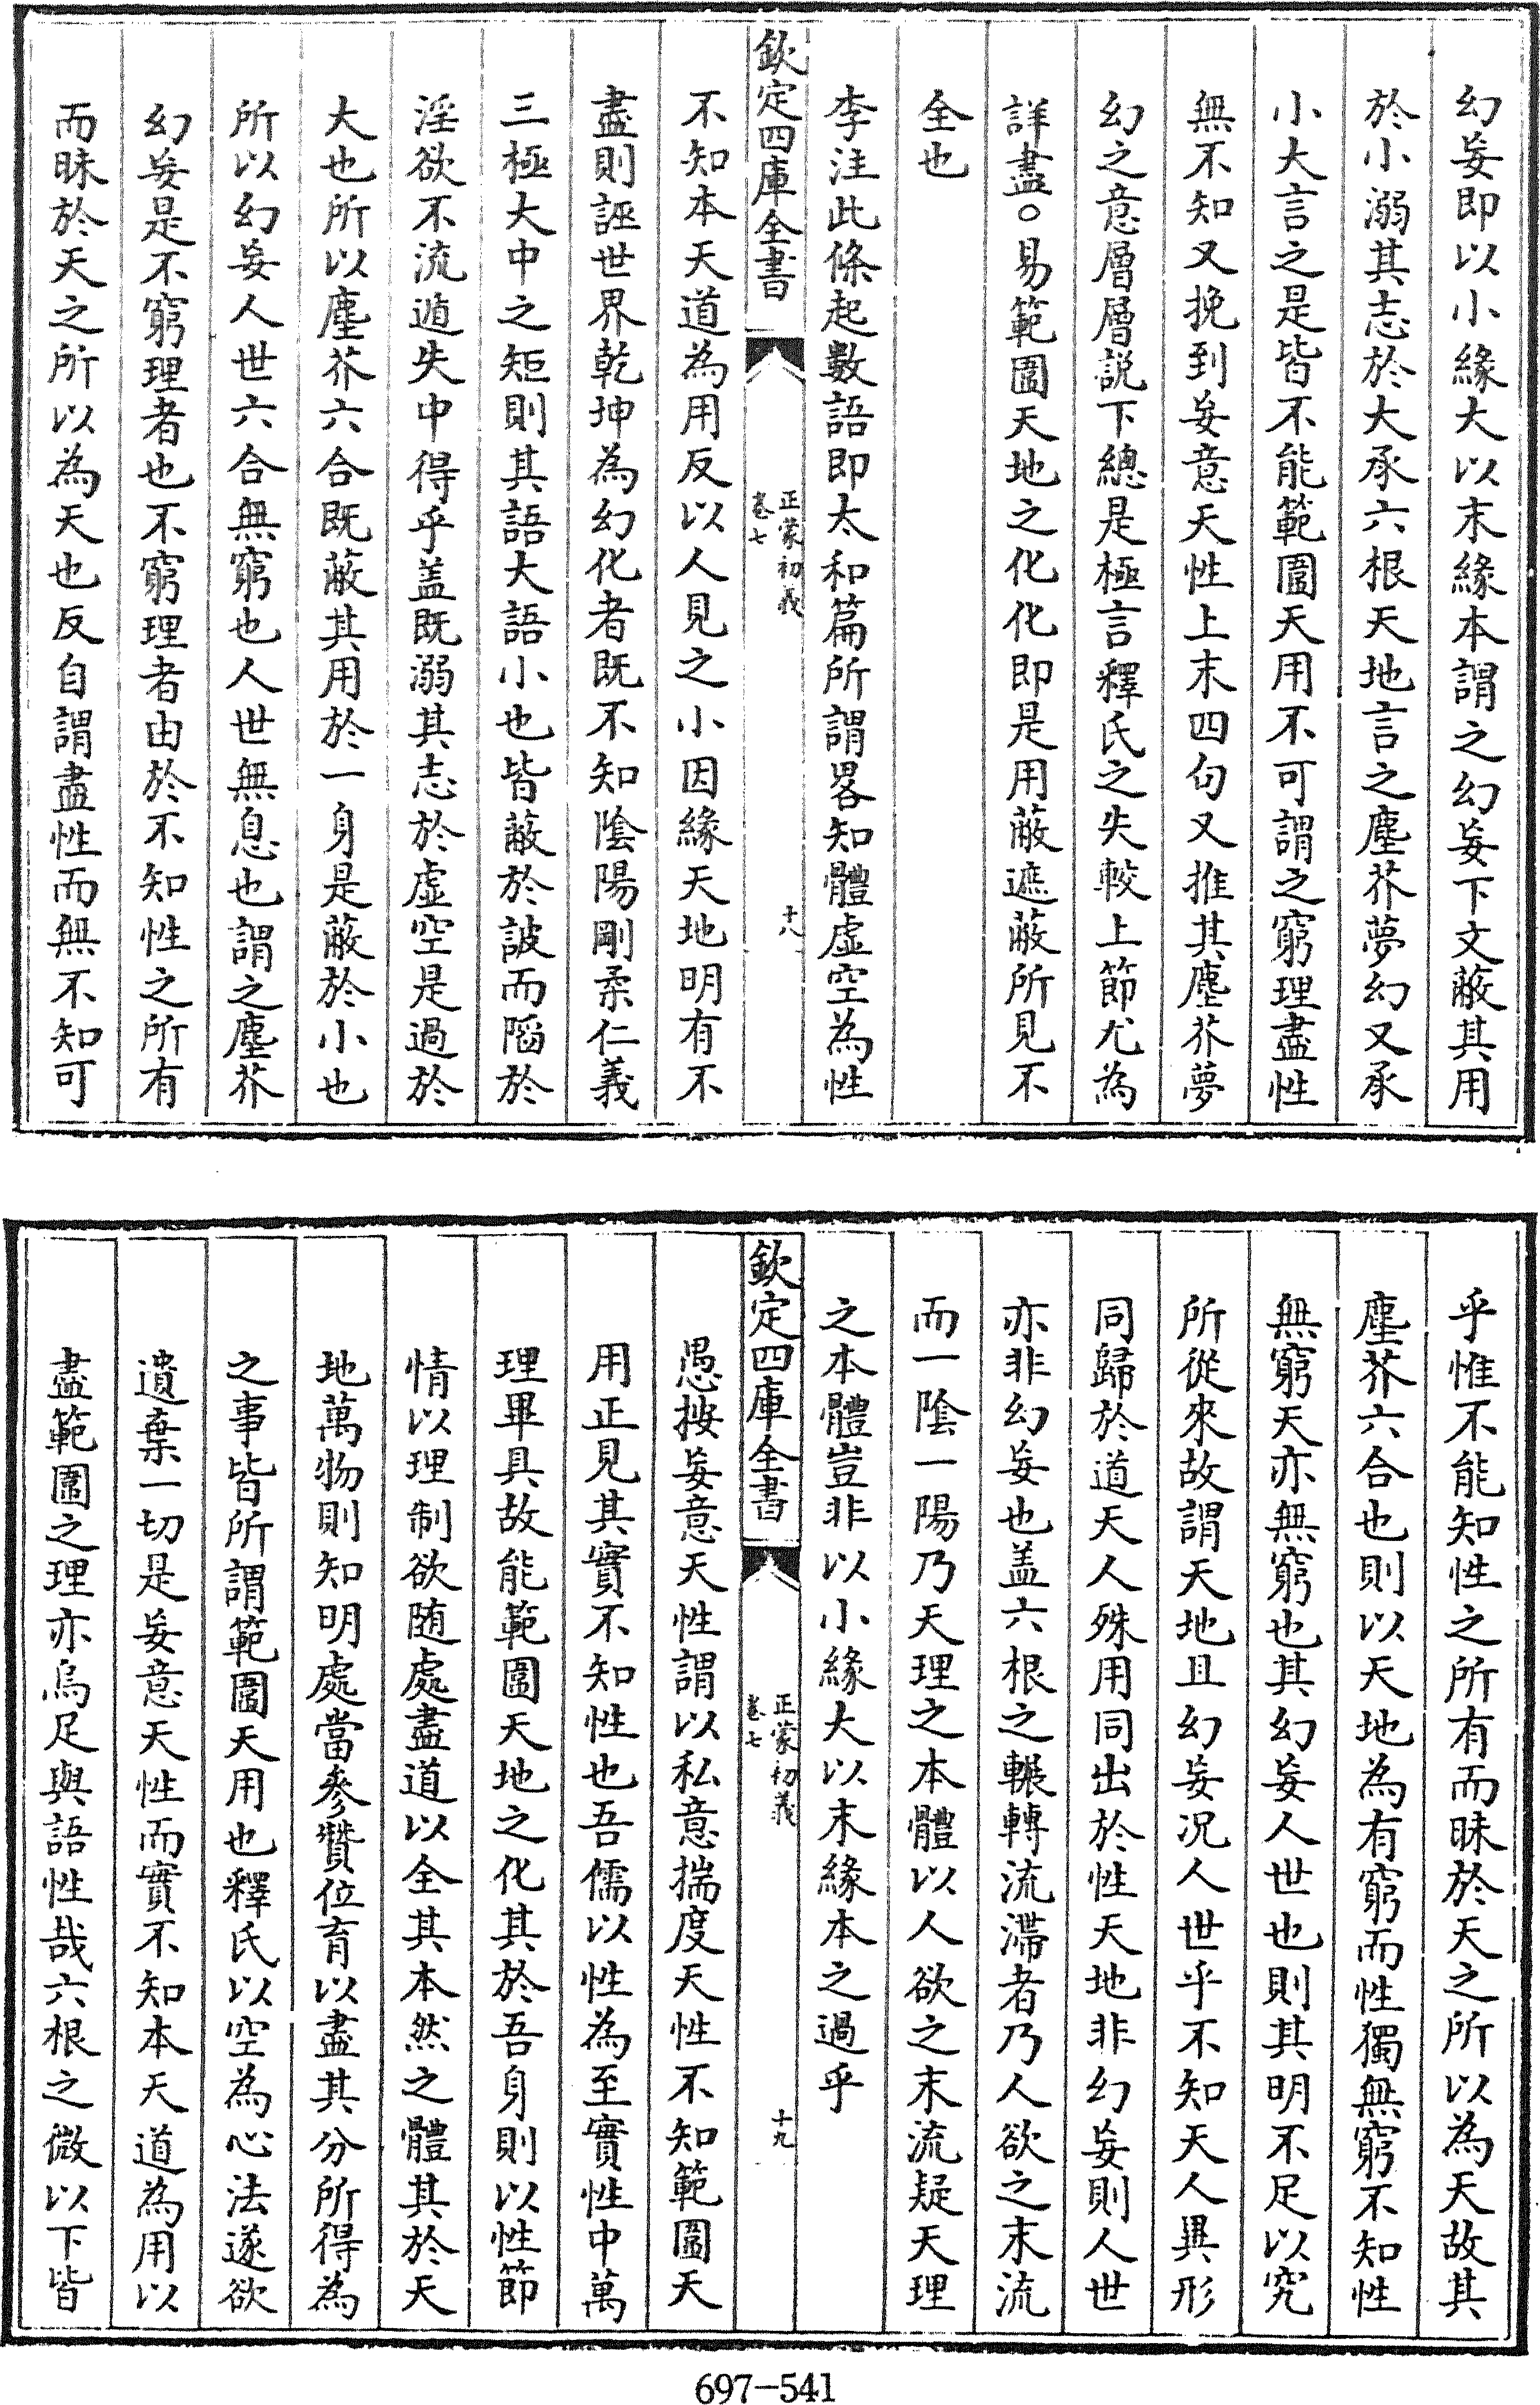 幻妄即以小緣大以末緣本謂之幻妄下文蔽其用
於小溺其志於大承六根天地言之塵芥夢幻又承
小大言之是皆不能範圍天用不可謂之窮理盡性
無不知又挽到妄意天性上末四句又推其塵芥夢
幻之意層層説下總是極言釋氏之失較上節尤為
詳盡○易範圍天地之化化即是用蔽遮蔽所見不
全也
李注此條起數語即太和篇所謂畧知體虚空為性
欽定四庫全書
正蒙初義
卷七
十八
不知本天道為用反以人見之小因緣天地明有不
盡則誣世界乾坤為幻化者既不知陰陽剛柔仁義
三極大中之矩則其語大語小也皆蔽於詖而陷於
淫欲不流遁失中得乎盖既溺其志於虚空是過於
大也所以塵芥六合既蔽其用於一身是蔽於小也
所以幻妄人世六合無窮也人世無息也謂之塵芥
幻妄是不窮理者也不窮理者由於不知性之所有
而昧於天之所以為天也反自謂盡性而無不知可
乎惟不能知性之所有而昧於天之所以為天故其
塵芥六合也則以天地為有窮而性獨無窮不知性
無窮天亦無窮也其幻妄人世也則其明不足以究
所從來故謂天地且幻妄況人世乎不知天人異形
同歸於道天人殊用同出於性天地非幻妄則人世
亦非幻妄也盖六根之輾轉流滯者乃人欲之末流
而一陰一陽乃天理之本體以人欲之末流疑天理
之本體豈非以小緣大以末緣本之過乎
欽定四庫全書
正蒙初義
卷七
十九
愚按妄意天性謂以私意揣度天性不知範圍天
用正見其實不知性也吾儒以性為至實性中萬
理畢具故能範圍天地之化其於吾身則以性節
情以理制欲随處盡道以全其本然之體其於天
地萬物則知明處當參贊位育以盡其分所得為
之事皆所謂範圍天用也釋氏以空為心法遂欲
遺棄一切是妄意天性而實不知本天道為用以
盡範圍之理亦烏足與語性哉六根之微以下皆
697-541